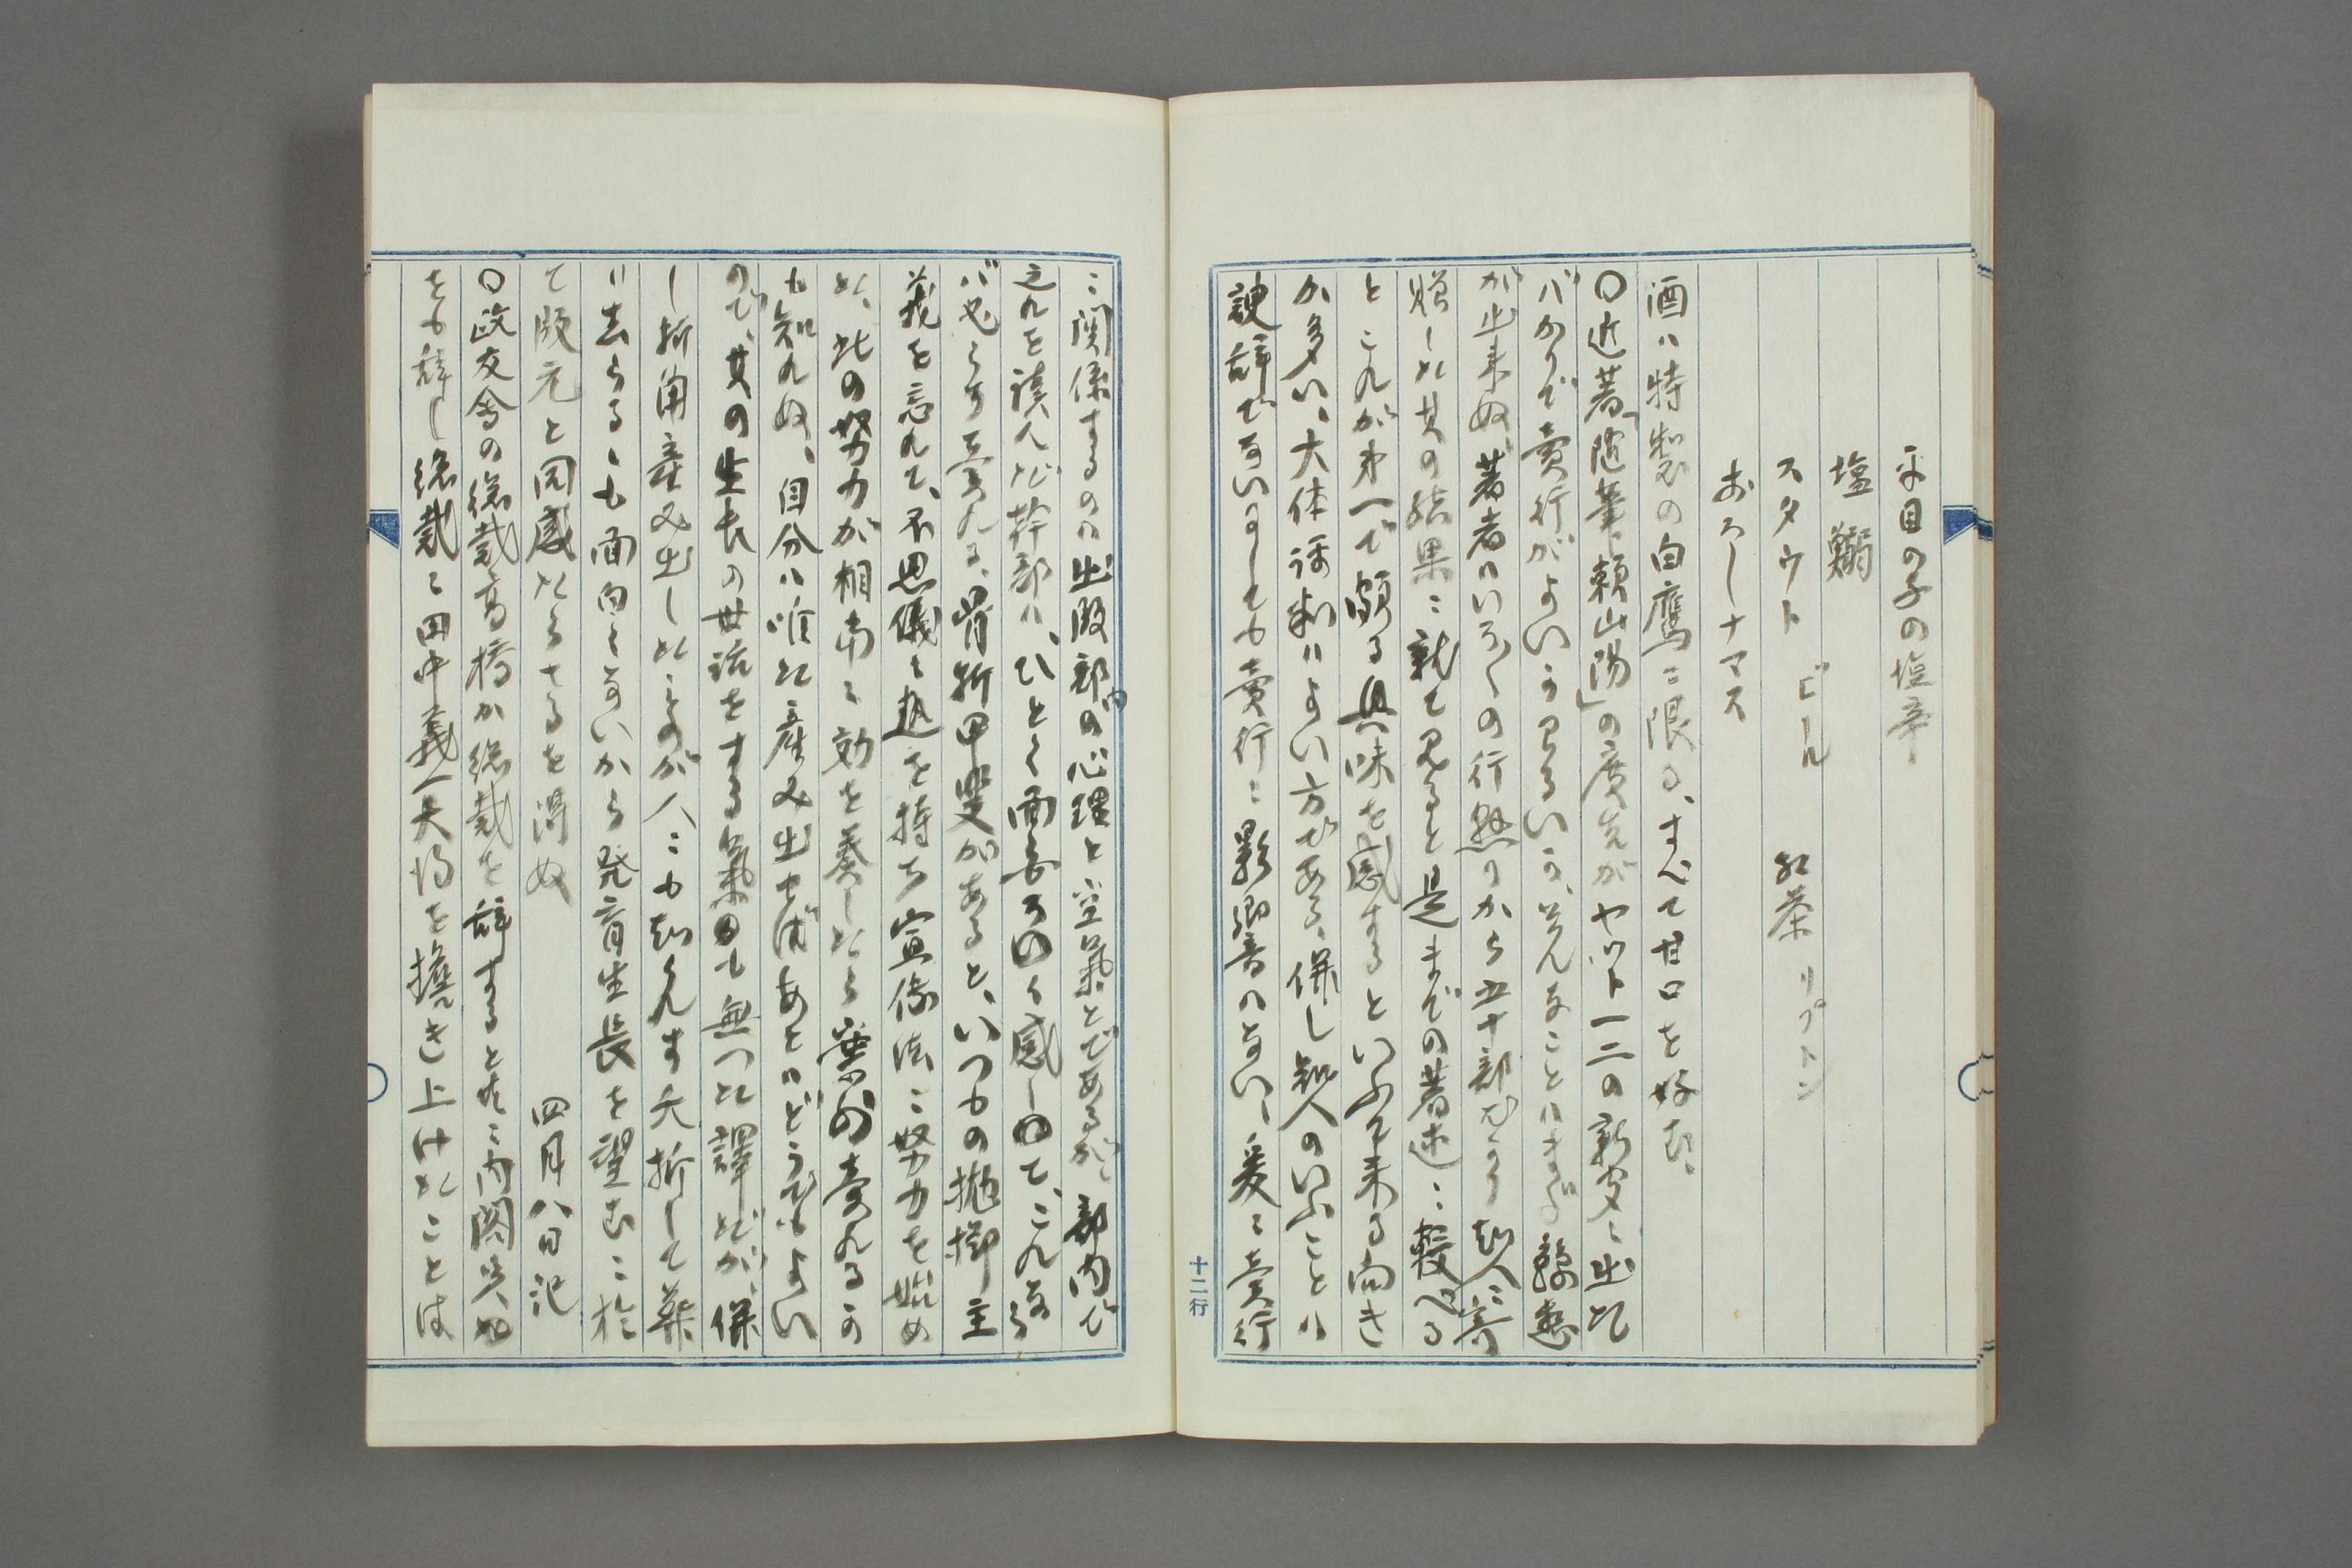 平目の子の塩辛
塩鰯
スタウト ビール 紅茶リプトン
おろしナマス
酒ハ特製の白鷹ニ限る、すべて甘口を好む、
〇近著「随筆頼山陽」の廣告がヤット一二の新聞に出た
バかりで賣行がよいかわるいか、そんなことハまだ
が出来ぬ、著者ハいろ〱の行懸りから五十部ばかり知人ニ寄
贈した其の結果ニ就て見ると是までの著述ニ較べる
とこれが第一で頗る興味を感ずるといふて来る向き
が多い、大体評判ハよい方である、併し知人のいふことハ
諛辞でないにしても賣行ニ影響ハない、爰に賣行
ニ関係するのハ出版部の心理と空気とであるが、部内で
之れを読んだ幹部ハ、ひどく面白く感じて、これなら
バ必らず賣れる、骨折甲斐があると、いつもの抛擲主
義を忘れて、不思儀に熱を持ち宣傳法ニ努力を始め
た、此の努力が相当に効を奏したら案外賣れるか
も知れぬ、自分ハ唯た産み出せばあとハどうでもよい
ので、其の生長の世話をする気も無つた譯だが、併
し折角産み出したものが人ニも知られず夭折して葬
り去らるゝも面白くないから発育生長を望むニ於
て版元と同感たらざるを得ぬ 四月八日記
〇政友会の総裁高橋が総裁を辞すると共ニ内閣
をも辞し総裁に田中義一大将を擔き上けたことは
十二行